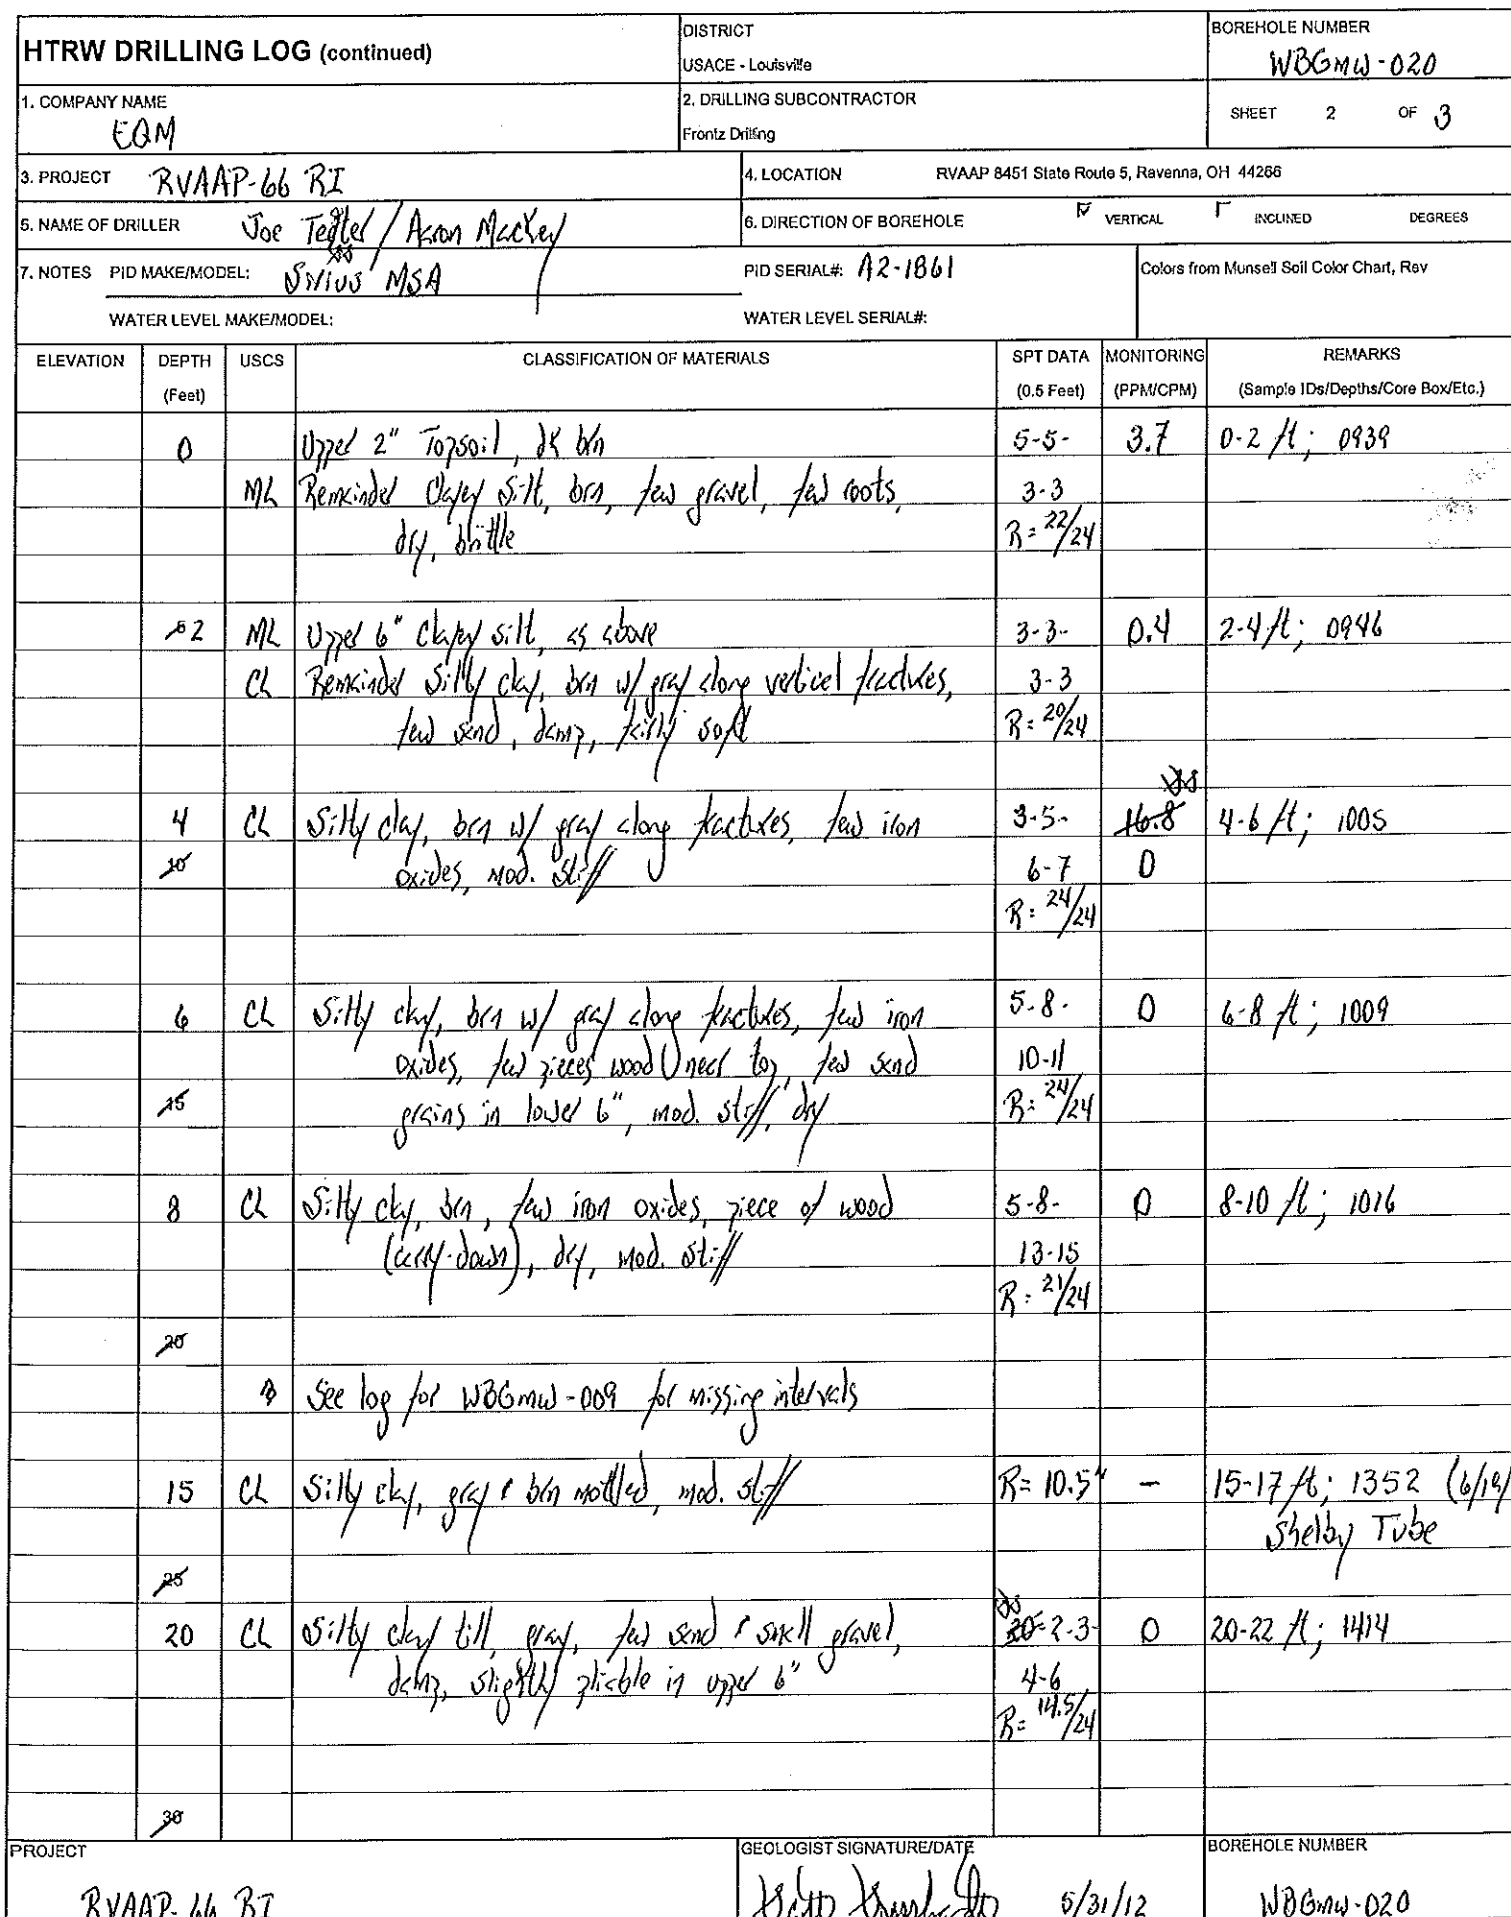 HTRW DRILLING LOG (continued)
DISTRICT
USACE - Louisville
BOREHOLE NUMBER
WBGmw-020
1. COMPANY NAME
EQM
2. DRILLING SUBCONTRACTOR
Frontz Drilling
SHEET 2 OF 3
3. PROJECT RVAAP-66 RI
4. LOCATION RVAAP 8451 State Route 5, Ravenna, OH 44266
5. NAME OF DRILLER Joe / Aaron Mackey
6. DIRECTION OF BOREHOLE VERTICAL INCLINED DEGREES
7. NOTES PID MAKE/MODEL: Sirius MSA
PID SERIAL#: A2-1861
Colors from Munsell Soil Color Chart, Rev
WATER LEVEL MAKE/MODEL:
WATER LEVEL SERIAL#:
ELEVATION DEPTH USCS CLASSIFICATION OF MATERIALS SPT DATA MONITORING REMARKS
(Feet) (0.5 Feet) (PPM/CPM) (Sample IDs/Depths/Core Box/Etc.)
0 Upper 2" Topsoil, dk brn 5-5- 3.7 0-2 ft; 0939
ML Remainder Clayey silt, brn, few gravel, few roots, 3-3
dry, brittle R= 22/24
5 2 ML Upper 6" Clayey silt, as above 3-3- 0.4 2-4 ft; 0946
CL Remainder Silty clay, brn w/ gray along vertical fractures, 3-3
few sand, damp, fairly soft R= 20/24
4 CL Silty clay, brn w/ gray along fractures, few iron 3-5- 16.8 4-6 ft; 1005
10 oxides, mod. stiff 6-7 0
R= 24/24
6 CL Silty clay, brn w/ gray along fractures, few iron 5-8- 0 6-8 ft; 1009
oxides, few pieces wood near top, few sand 10-11
15 grains in lower 6", mod. stiff, dry R= 24/24
8 CL Silty clay, brn, few iron oxides, piece of wood 5-8- 0 8-10 ft; 1016
(carry-down), dry, mod. stiff 13-15
R= 21/24
20
See log for WBGmw-009 for missing intervals
15 CL Silty clay, gray & brn mottled, mod. stiff R= 10.5" - 15-17 ft; 1352 (6/19/
Shelby Tube
25
20 CL Silty clay till, gray, few sand & small gravel, 20- 2-3- 0 20-22 ft; 1414
damp, slightly pliable in upper 6" 4-6
R= 14.5/24
30
PROJECT
RVAAP-66 RI
GEOLOGIST SIGNATURE/DATE
5/31/12
BOREHOLE NUMBER
WBGmw-020